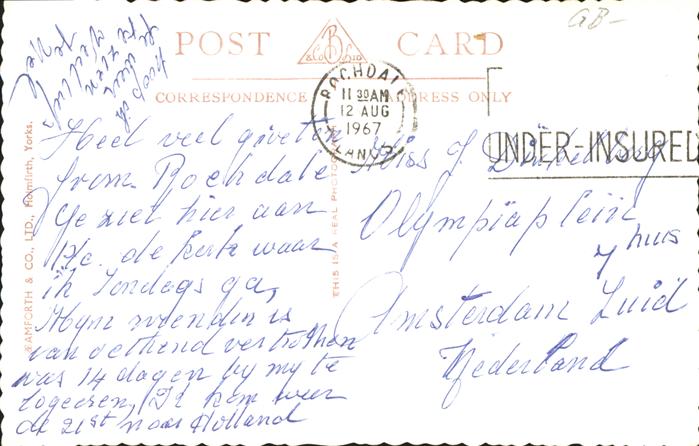 GB-
POST CARD
B & Co LTD
CORRESPONDENCE ADDRESS ONLY
ROCHDALE
11 30 AM
12 AUG
1967
LANCS
UNDER-INSURED
BAMFORTH & CO., LTD., Holmfirth, Yorks.
THIS IS A REAL PHOTO
Heel veel groeten
from Rochdale
Ge ziet hier aan
P/c. de kerk waar
ik Zondags ga,
Myn vriendin is
van ochtend vertrokken
was 14 dagen by my te
logeeren, Ik kom weer
de 21st naar Holland
Miss J
Olympiaplein
huis
Amsterdam Zuid
Nederland